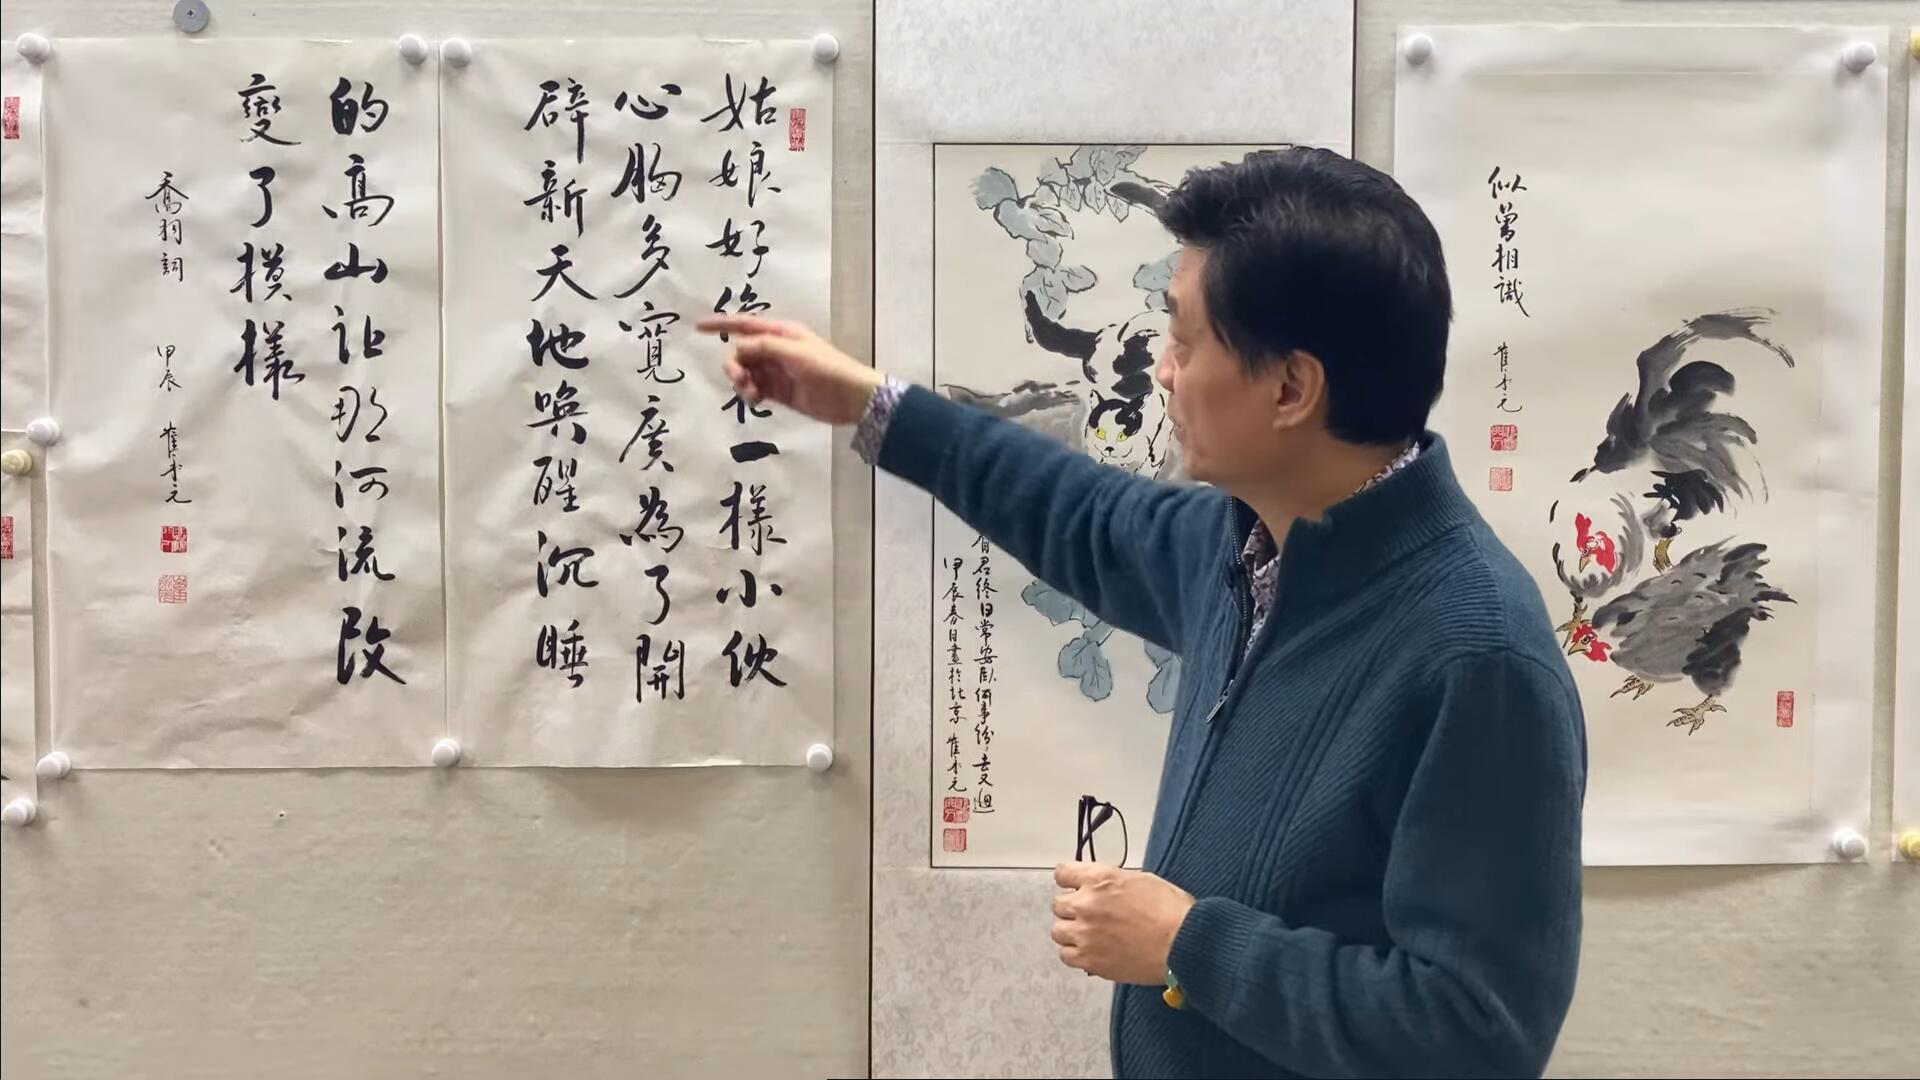 似曾相識
崔永元
君終日常安臥何事紛々去又迴
甲辰春日畫於北京 崔永元
姑娘好像花一樣小伙
心胸多寬廣為了開
辟新天地喚醒沉睡
的高山让那河流改
變了模樣
喬羽詞 甲辰 崔永元